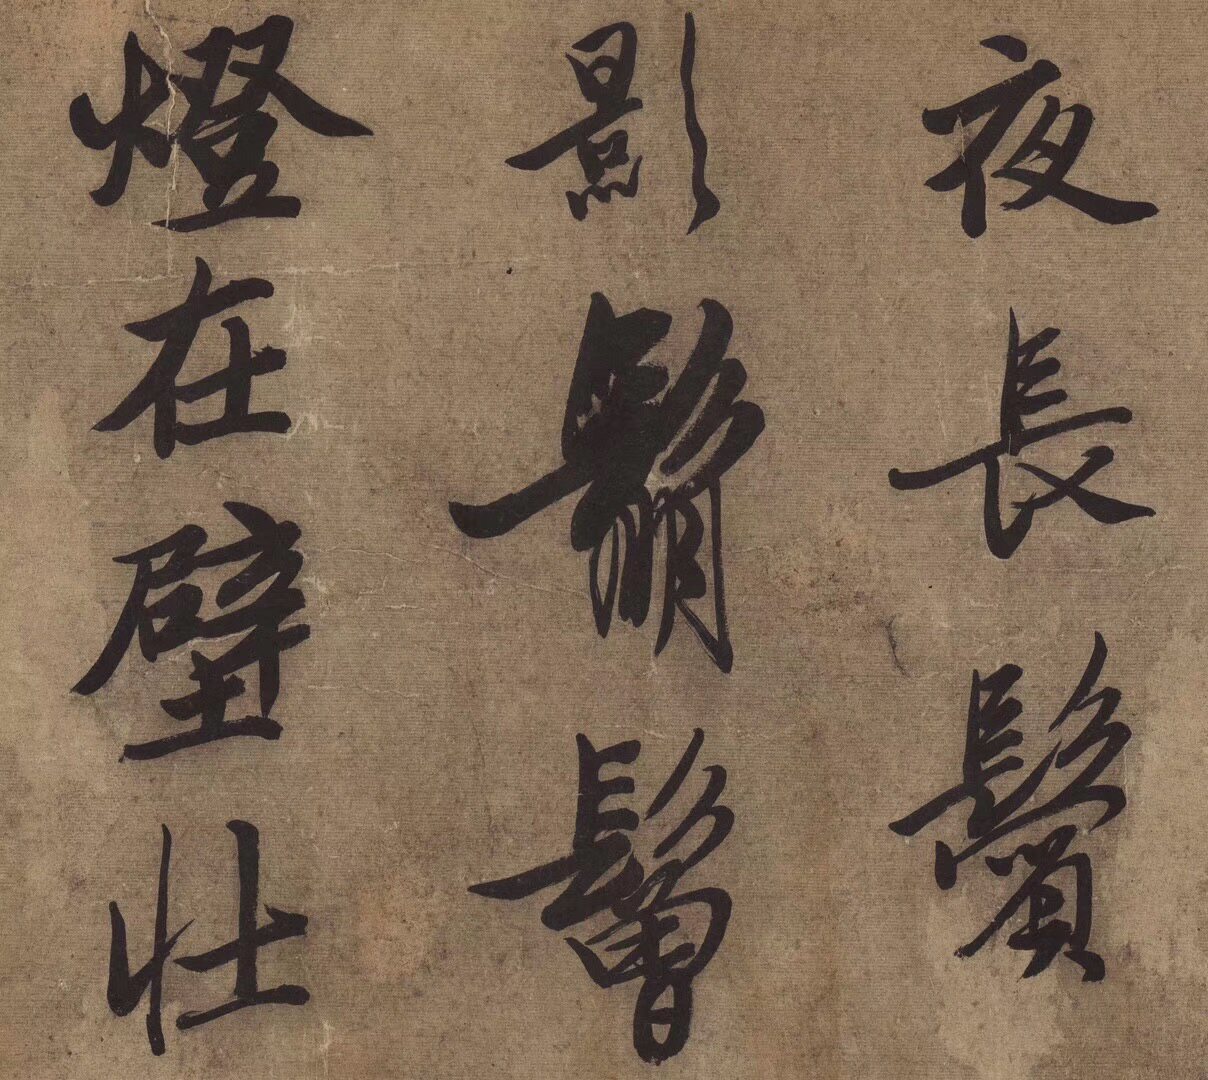 夜長鬢
影鬅鬙
燈在壁壯